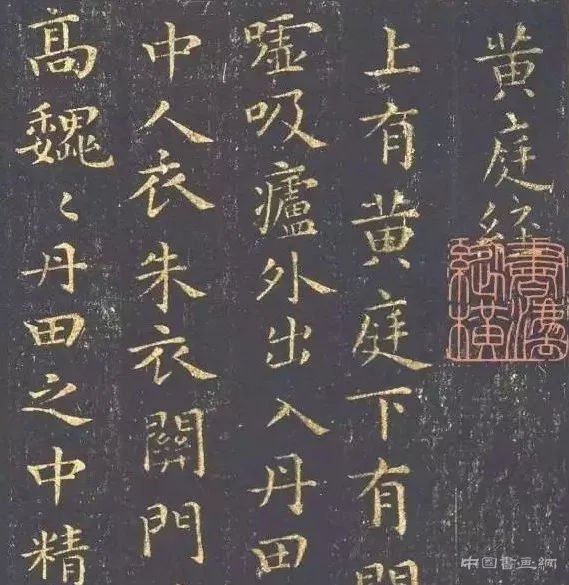 黄庭經
上有黄庭下有
嘘吸廬外出入丹田
中人衣朱衣關門
髙巍〻丹田之中精
中国書画網